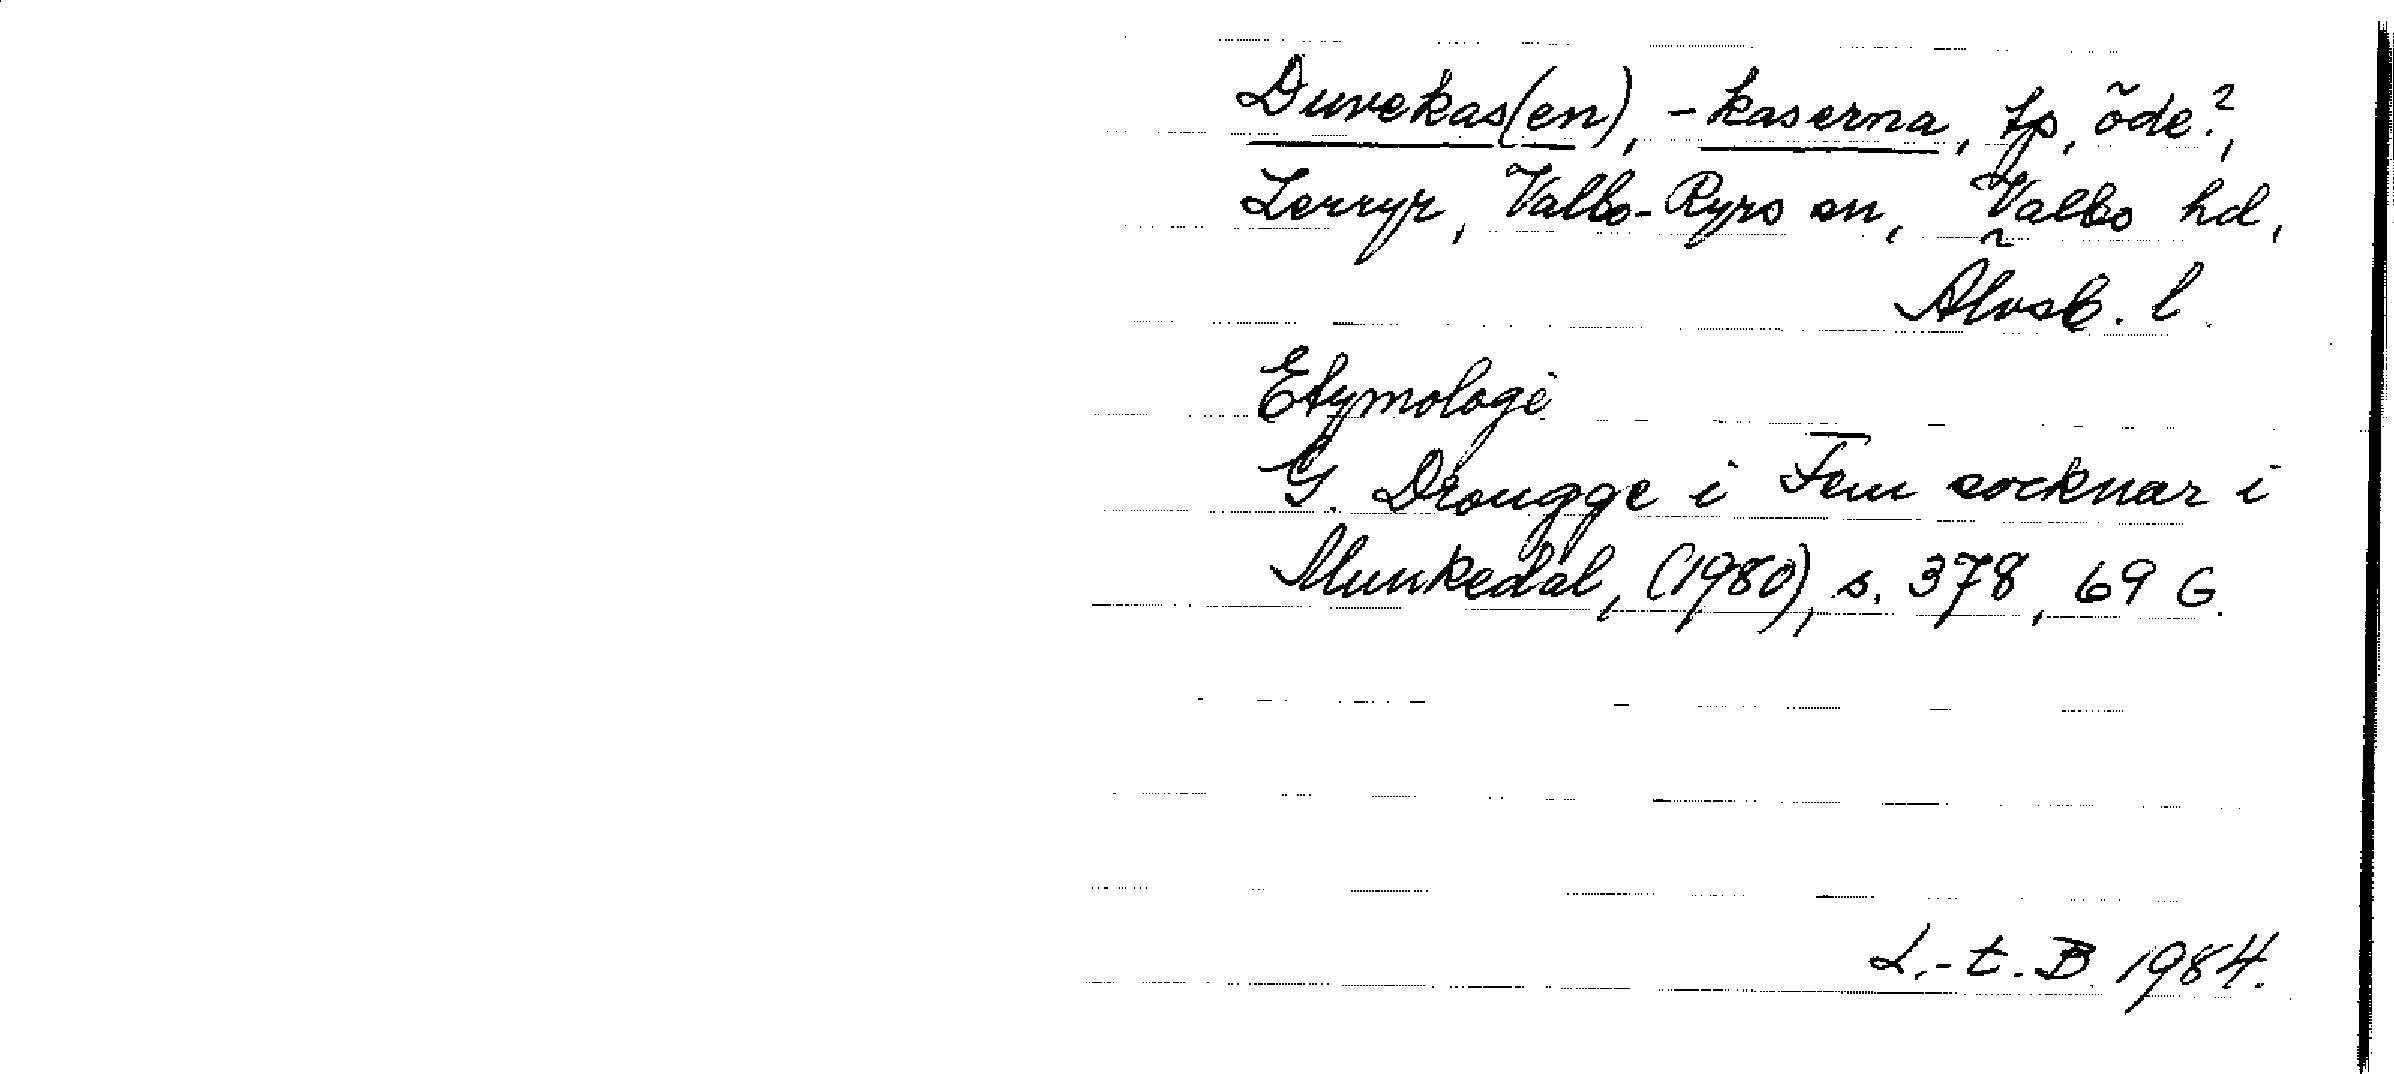 Duvekas(en), -kaserna, tp, öde?,
Lerryr, Valbo-Ryrs sn, Valbo hd,
Älvsb. l.
Etymologi
G. Drougge i Fem socknar i
Munkedal, (1980), s. 378, 69 G.
L.-t. B 1984.